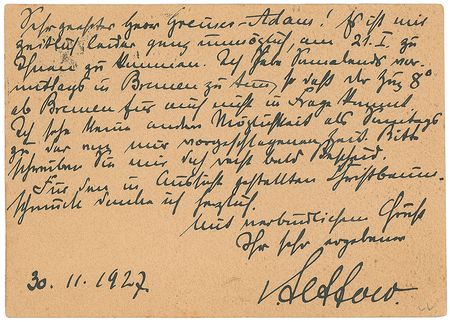 Sehr geehrter Herr Greuner-Adam! Es ist mir
zeitlich leider ganz unmöglich, am 21. I. zu
Ihnen zu kommen. Ich habe Sonnabends vor-
mittags in Bremen zu tun, so daß der Zug 8⁰
ab Bremen für mich nicht in Frage kommt.
Ich sehe keine andere Möglichkeit als Sonntags
zu der von mir vorgeschlagenen Zeit. Bitte
schreiben Sie mir doch recht bald Bescheid.
Für den in Aussicht gestellten Christbaum-
schmuck danke ich herzlich.
Mit verbindlichem Gruß
Ihr sehr ergebener
30. 11. 1927.
v. Lettow.